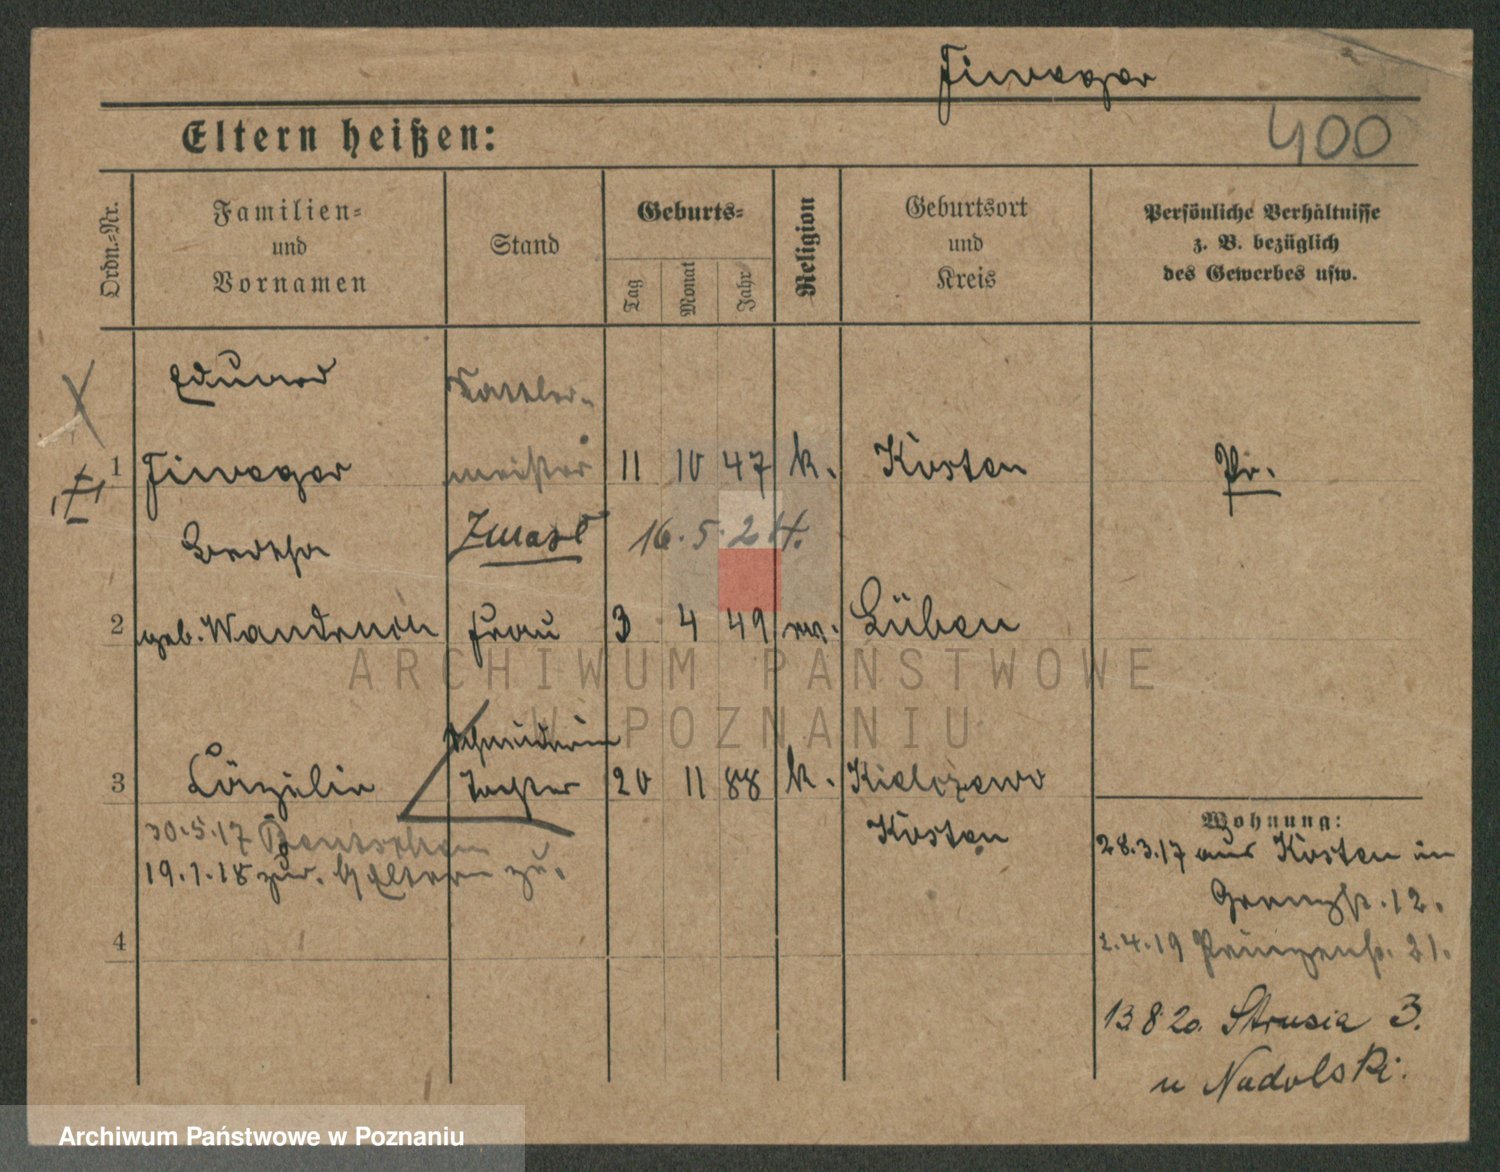 Fiweger
400
Eltern heißen:
Ordn.-Nr.
Familien-
und
Vornamen
Stand
Geburts-
Tag
Monat
Jahr
Religion
Geburtsort
und
Kreis
Persönliche Verhältnisse
z. B. bezüglich
des Gewerbes usw.
Eduard
Sattler-
1 Fiweger meister 11 10 47 k. Kosten Pr.
Bertha Zmarł 16.5.24.
2 geb. Frau 3 4 49 ew. Lüben
Schneiderin
3 Cäzilie Tochter 20 11 88 k. Kielczewo
Kosten
30.5.17 Bentschen
19.1.18 zur. Eltern zu.
4
Wohnung:
28.3.17 aus Kosten in
Grenzstr. 12.
2.4.19 Prinzenstr. 21.
13.8.20. Strusia 3.
u Nadolski.
ARCHIWUM PAŃSTWOWE
W POZNANIU
Archiwum Państwowe w Poznaniu